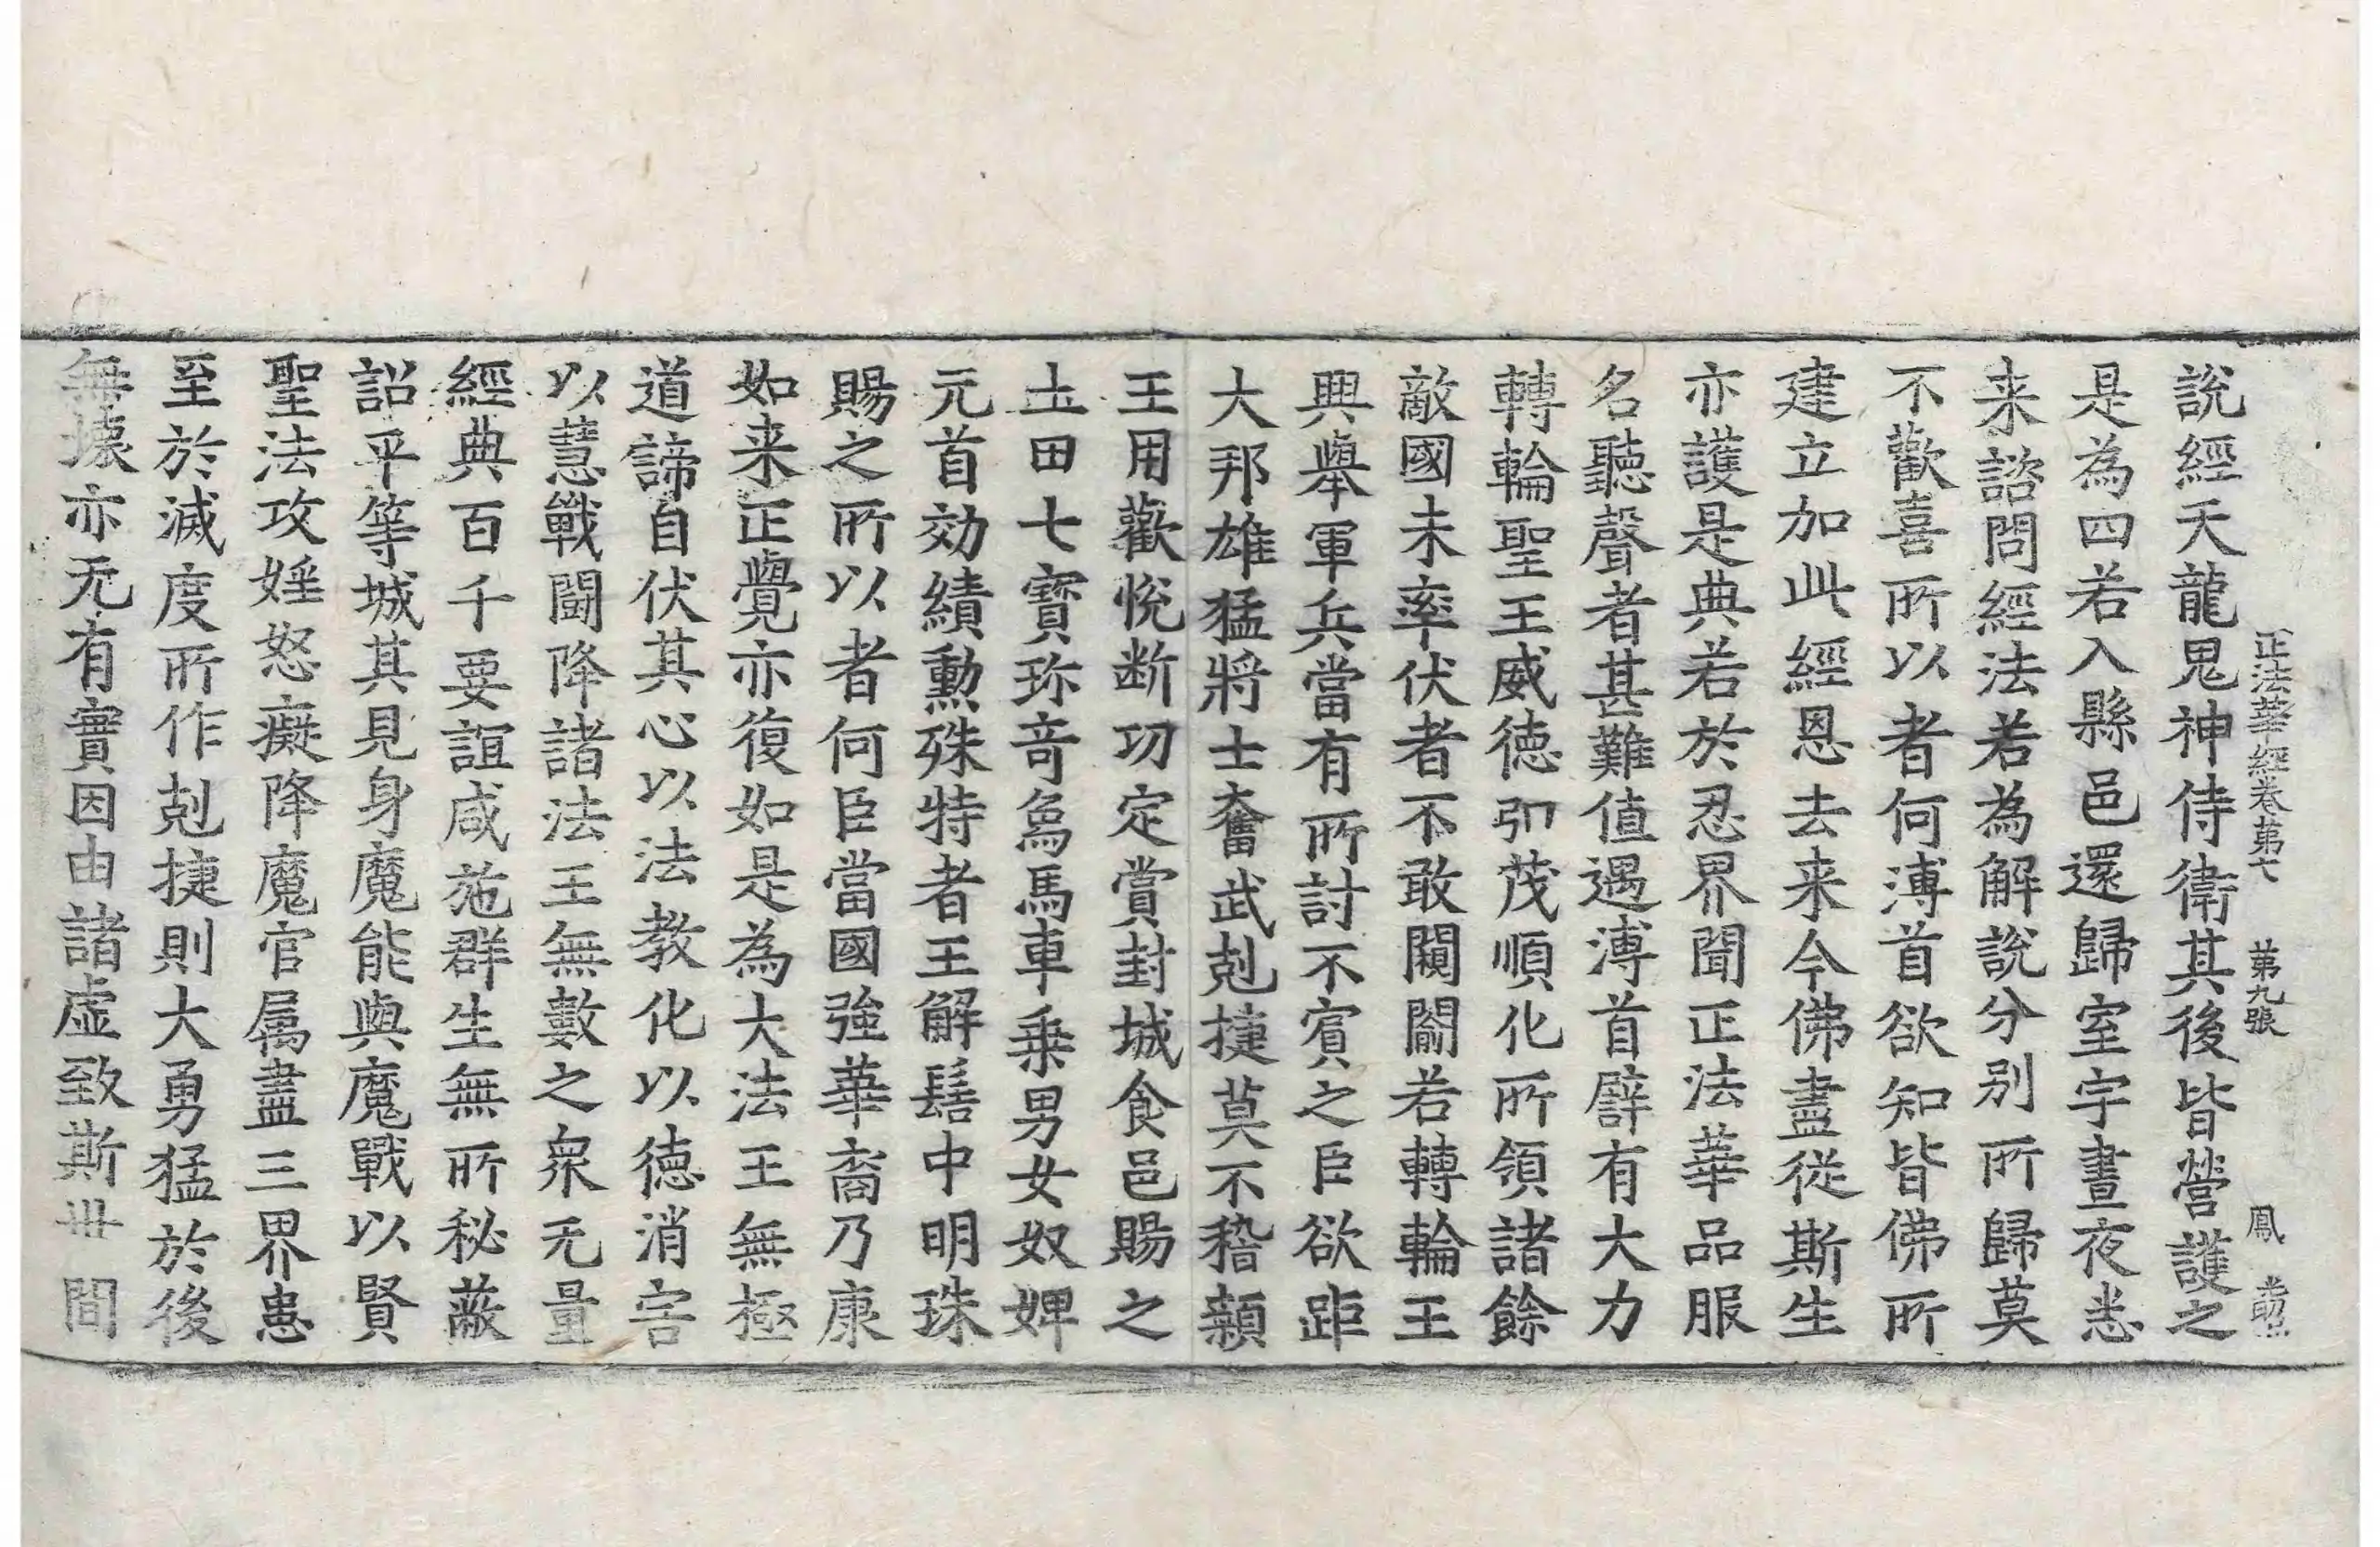 正法華經卷第七　第九張　鳳
說經天龍鬼神侍衛其後皆營護之
是為四若入縣邑還歸室宇晝夜悉
来諮問經法若為解說分別所歸莫
不歡喜所以者何溥首欲知皆佛所
建立加此經恩去来今佛盡從斯生
亦護是典若於忍界聞正法華品服
名聽聲者甚難值遇溥首譬有大力
轉輪聖王威德弘茂順化所領諸餘
敵國未率伏者不敢闚闟若轉輪王
興舉軍兵當有所討不賓之臣欲距
大邦雄猛將士奮武剋捷莫不稽顙
王用歡悅断功定賞封城食邑賜之
土田七寶珎竒象馬車乗男女奴婢
元首効績勳殊特者王解髻中明珠
賜之所以者何臣當國強華裔乃康
如来正覺亦復如是為大法王無極
道諦自伏其心以法教化以德消害
以慧戰鬪降諸法王無數之衆无量
經典百千要誼咸施群生無所秘蔽
詔平等城其見身魔能與魔戰以賢
聖法攻婬怒癡降魔官属盡三界患
至於滅度所作剋捷則大勇猛於後
無壞亦无有實因由諸虛致斯丗間